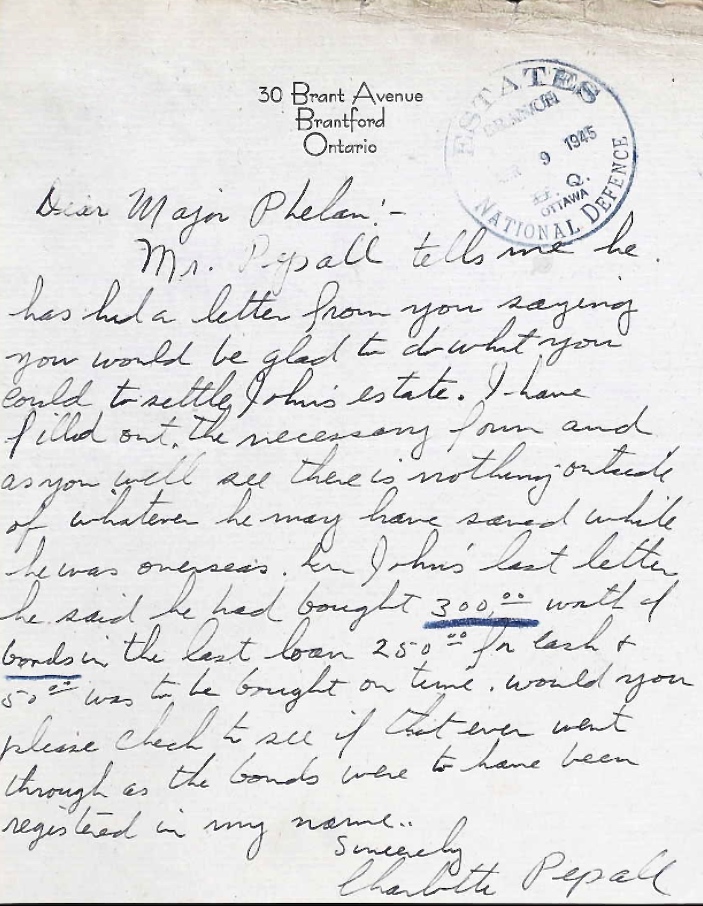 30 Brant Avenue
Brantford
Ontario
ESTATES
BRANCH
9 1945
H. Q.
OTTAWA
NATIONAL DEFENCE
Dear Major Phelan:-
Mr. Pepall tells me he
has had a letter from you saying
you would be glad to do what you
could to settle John's estate. I have
filled out, the necessary form and
as you will see there is nothing outside
of whatever he may have saved while
he was overseas. In John's last letter
he said he had bought 300.00 worth of
bonds in the last loan 250.00 for cash &
50.00 was to be bought on time. would you
please check to see if that ever went
through as the bonds were to have been
registered in my name..
Sincerely
Charlotte Pepall